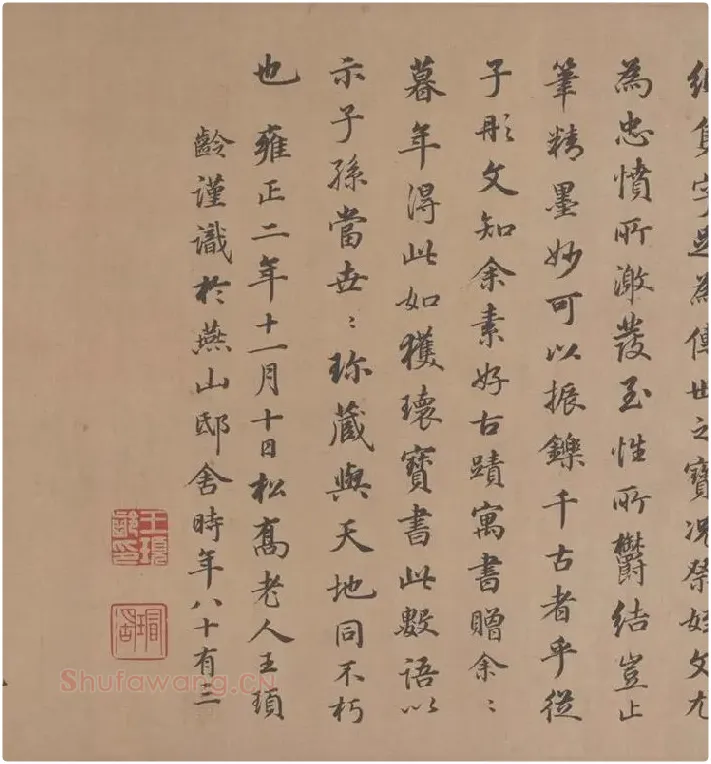 紙隻字足為傳世之寶況祭姪文尤
為忠憤所激發至性所鬱結豈止
筆精墨妙可以振鑠千古者乎從
子彤文知余素好古蹟寓書贈余〻
暮年得此如獲瓌寶書此數語以
示子孫當世〻珍藏與天地同不朽
也 雍正二年十一月十日松喬老人王頊
齡謹識於燕山邸舍時年八十有三
王頊齡印
Shufawang.CN